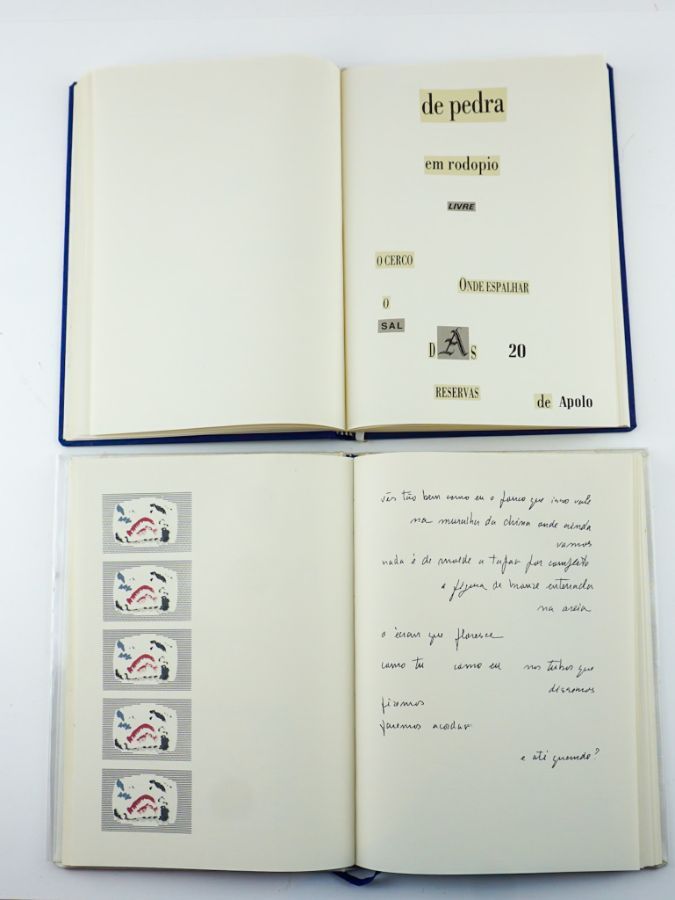 de pedra
em rodopio
LIVRE
O CERCO
ONDE ESPALHAR
O
SAL
DAS 20
RESERVAS
de Apolo
vês tão bem como eu o pouco que isso vale
na muralha da china onde ainda
vamos
nada é de molde a tapar por completo
a figura de bronze enterrada
na areia
o écran que floresce
como tu como eu nos tubos que
dissemos
fizemos
faremos acodar
e até quando?